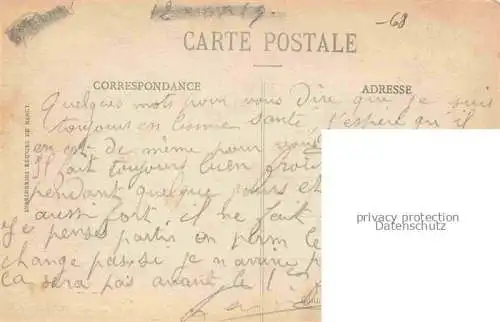 -68
CARTE POSTALE
CORRESPONDANCE
ADRESSE
Quelques mots pour vous Dire que je suis
toujours en bonne santé, j'espère qu'il
en est de même pour vous
Il fait toujours bien froid
pendant quelque jours et
aussi fort, il ne fait
je penses partir en perm le
change pas, si je n'arrive p
ça sera pas avant le 1
IMPRIMERIES RÉUNIES DE NANCY
privacy protection
Datenschutz